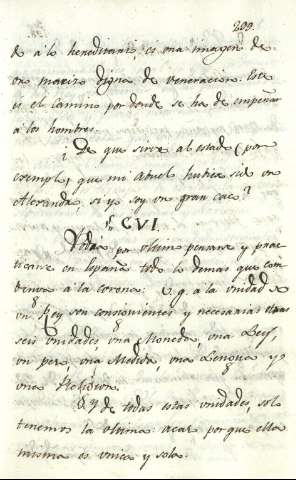 209.
de á lo hereditario, es una imagen de
un marix digna de veneracion. Este
es el camino por donde se ha de empeñar
á los hombres.
¿De que sirve al estado (por
exemplo) que mi Abuelo hubiera sido un
Alexandro, si yo soy un gran
§ CVI.
por ultimo pensarse y prac
ticarse en España todo lo demas que con
á la corona: V.g. á la unidad de
un Rey son consiguientes y necesarias otras
seis unidades, una Moneda, una Ley,
un peso, una Medida, una Lengua y
una Religion.
Y de todas estas unidades, solo
tenemos la ultima: acaso porque ella
misma es unica y sola.